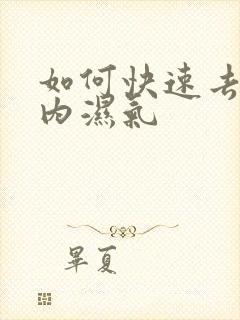 如何快速去
内濕氣
畢夏